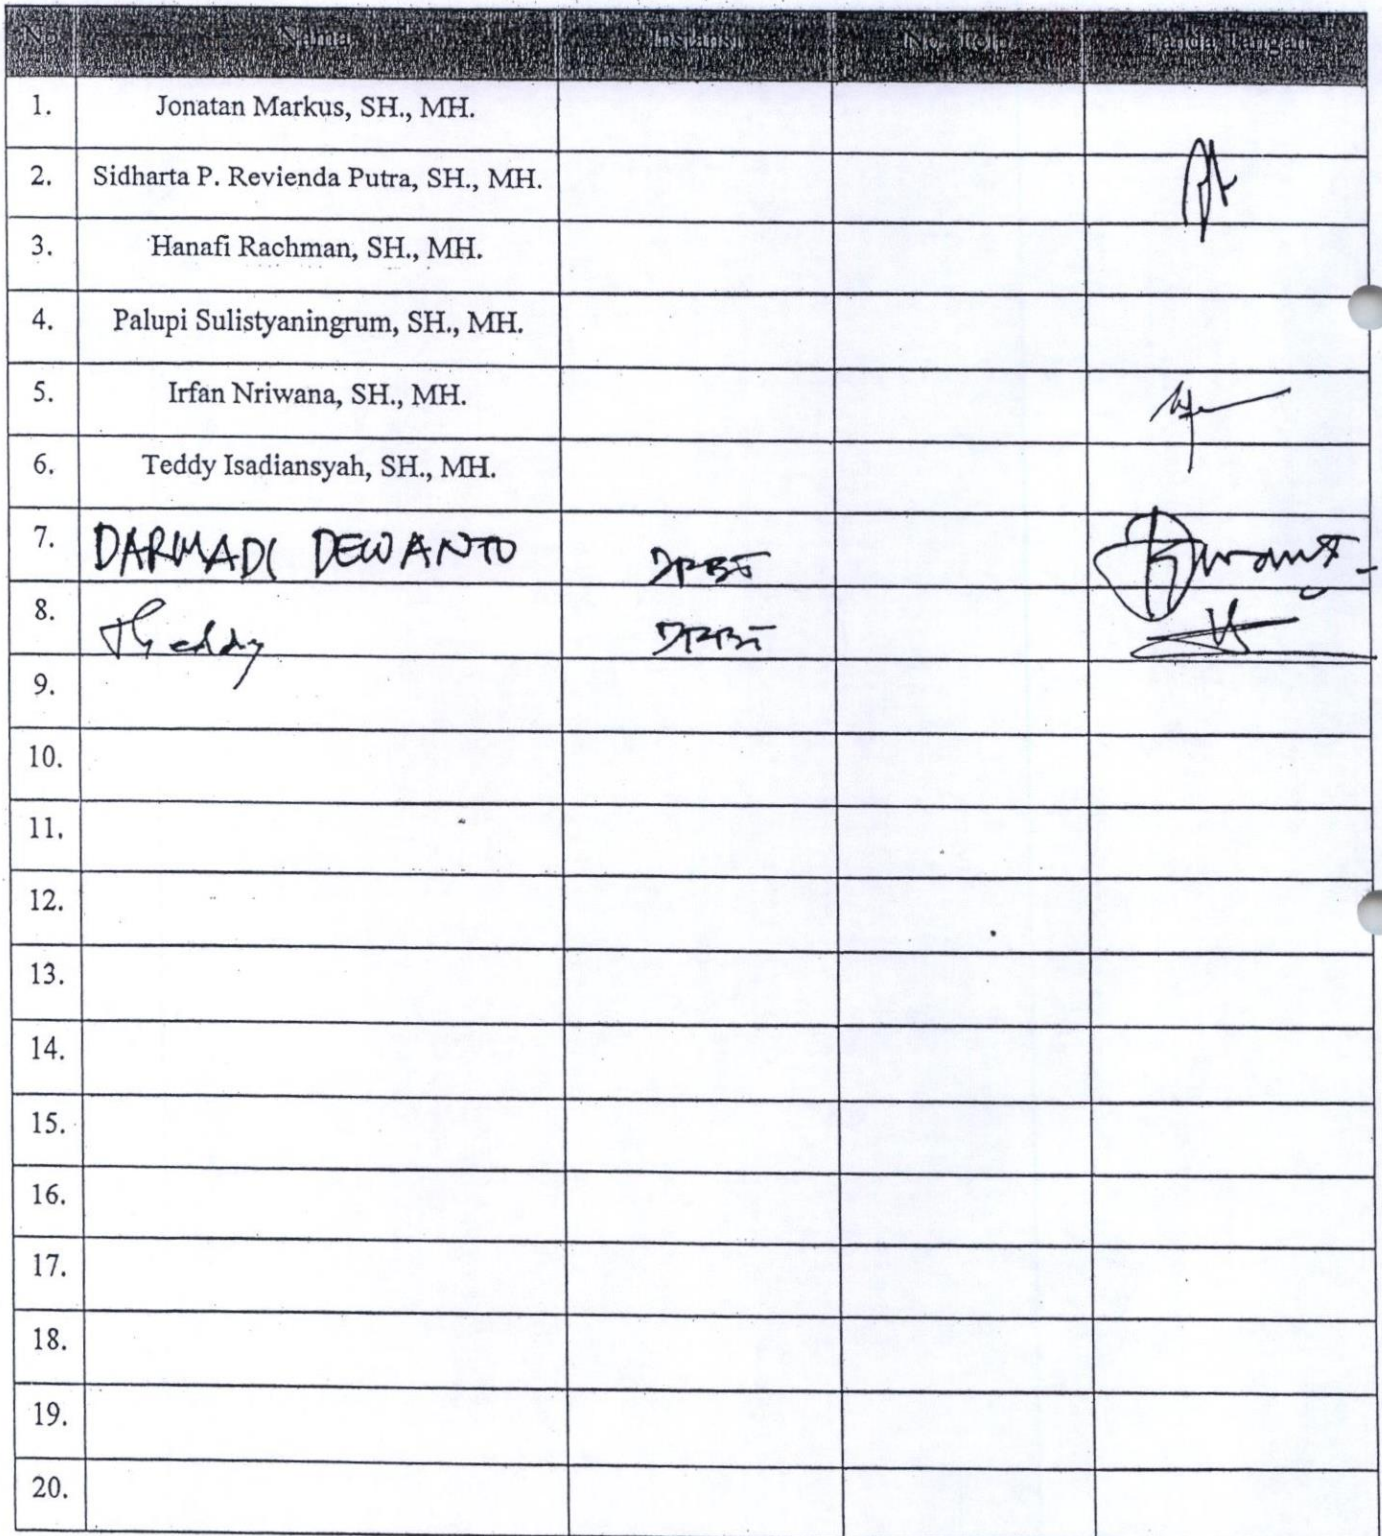 No. Nama Instansi No. Telp Tanda Tangan
1. Jonatan Markus, SH., MH.
2. Sidharta P. Revienda Putra, SH., MH.
3. Hanafi Rachman, SH., MH.
4. Palupi Sulistyaningrum, SH., MH.
5. Irfan Nriwana, SH., MH.
6. Teddy Isadiansyah, SH., MH.
7. DARMADI DEWANTO
8. Theddy
9.
10.
11.
12.
13.
14.
15.
16.
17.
18.
19.
20.